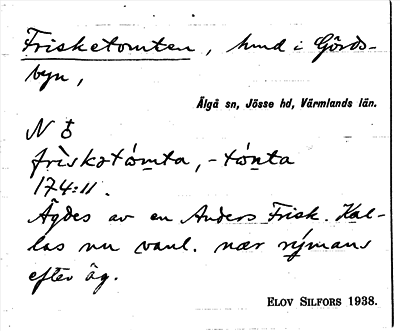 Frisketomten, hmd i Gårds-
byn,
Älgå sn, Jösse hd, Värmlands län.
N 8
friskətómta, -tónta
174:11.
Ägdes av en Anders Frisk. Kal-
las nu vanl. nær nýmans
efter äg.
ELOV SILFORS 1938.